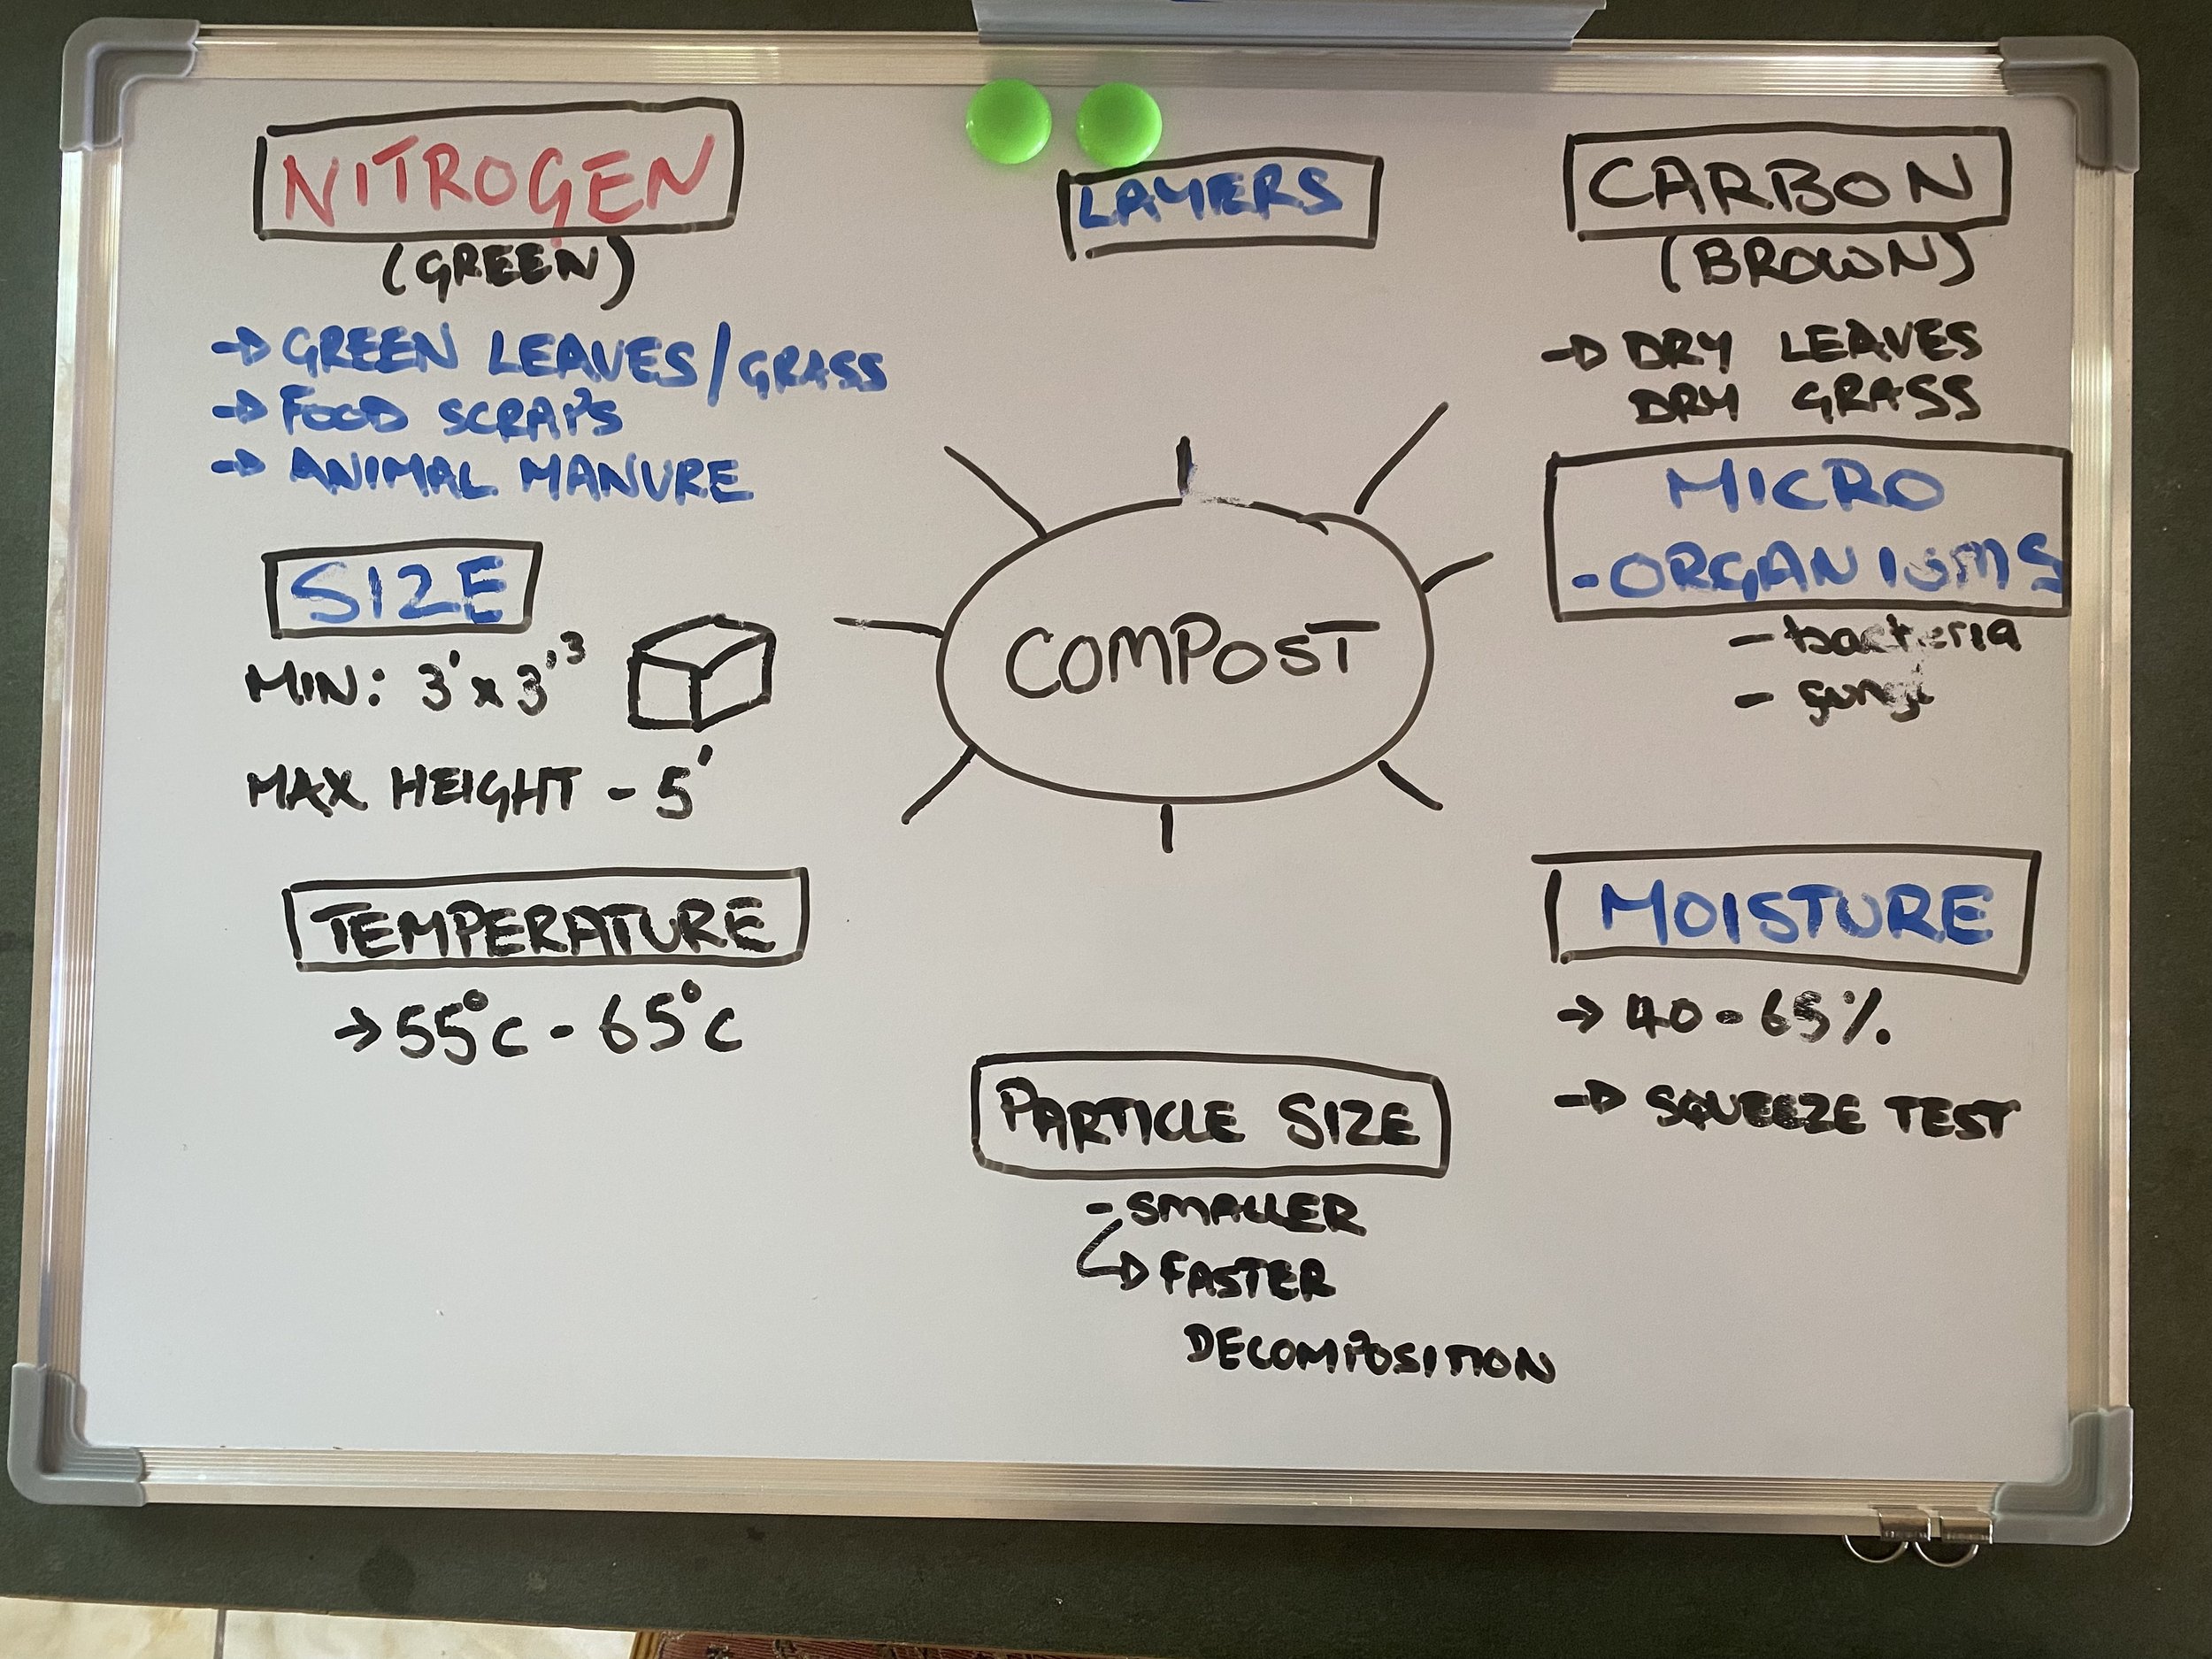 NITROGEN
(GREEN)
→ GREEN LEAVES/GRASS
→ FOOD SCRAPS
→ ANIMAL MANURE
LAYERS
CARBON
(BROWN)
→ DRY LEAVES
DRY GRASS
MICRO
-ORGANISMS
- bacteria
- fungi
SIZE
MIN: 3' x 3'³
MAX HEIGHT - 5'
COMPOST
TEMPERATURE
→ 55°C - 65°C
MOISTURE
→ 40-65%
→ SQUEEZE TEST
PARTICLE SIZE
- SMALLER
→ FASTER
DECOMPOSITION